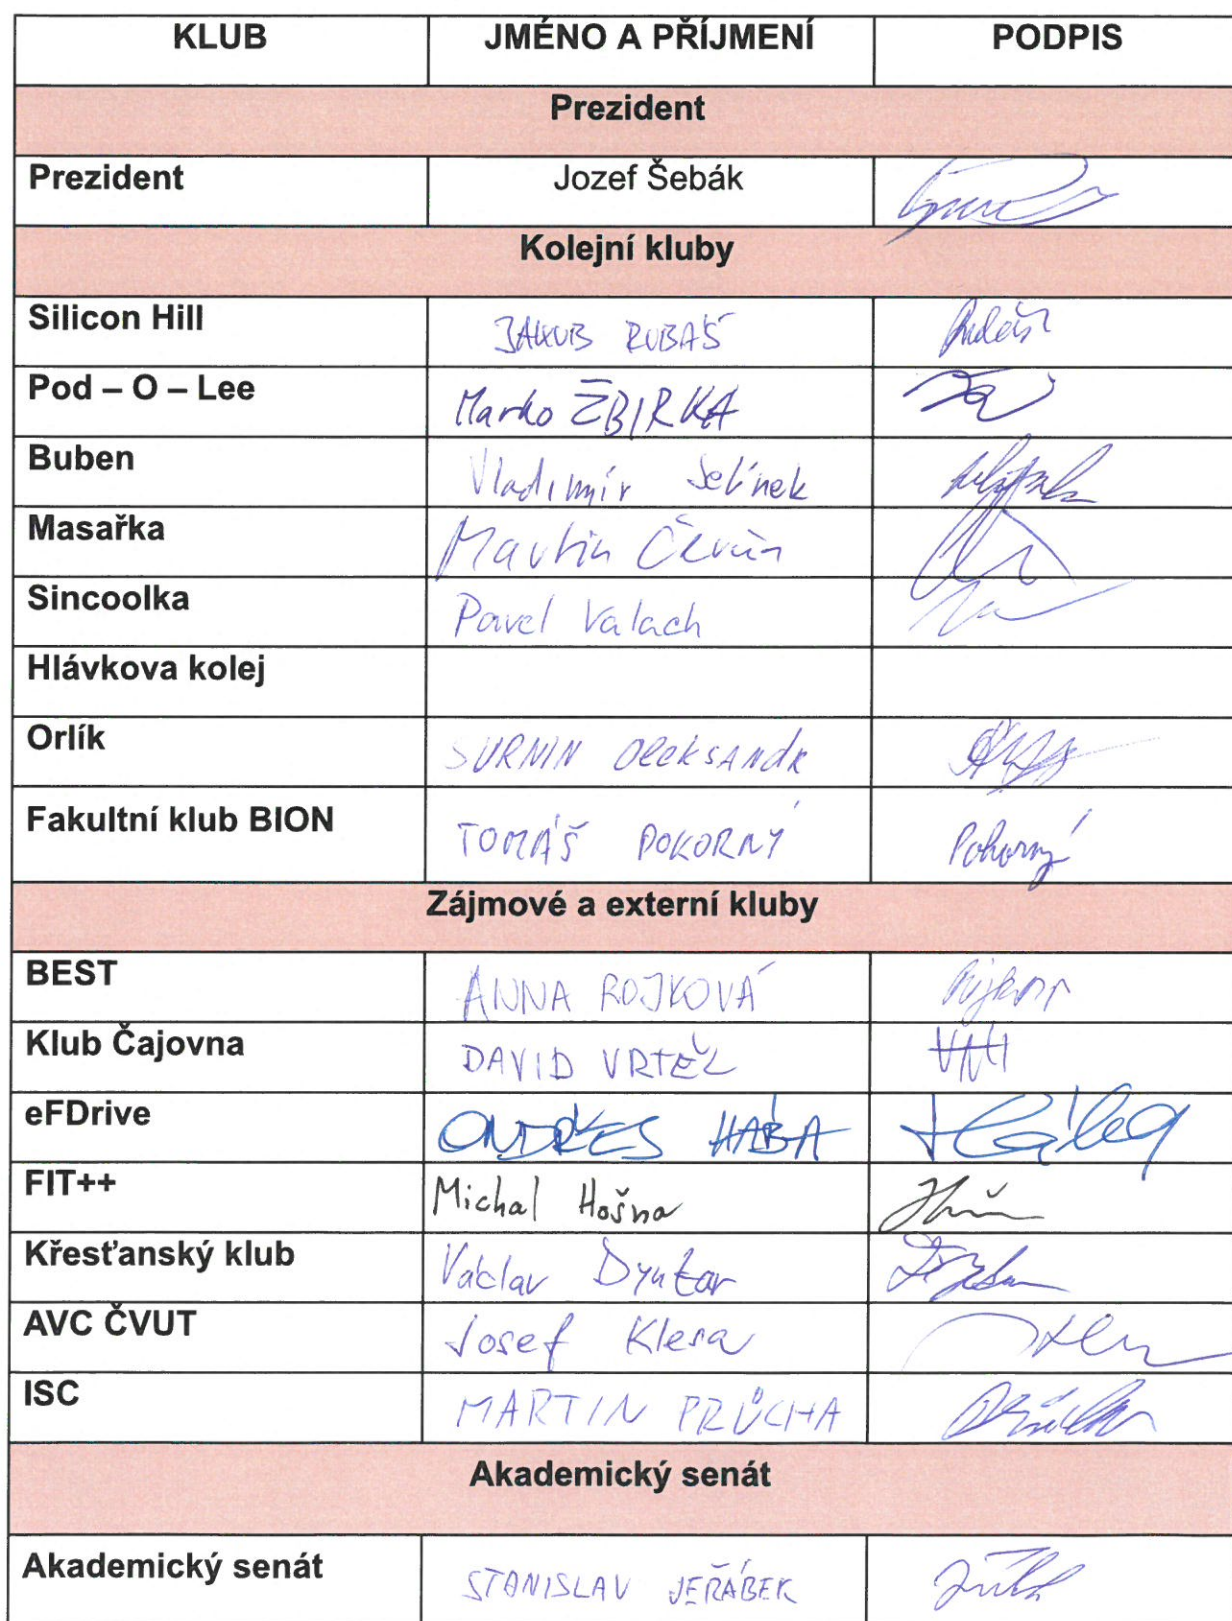 KLUB JMÉNO A PŘÍJMENÍ PODPIS
Prezident
Prezident Jozef Šebák
Kolejní kluby
Silicon Hill JAKUB RUBÁŠ
Pod – O – Lee Marko ŽBIRKA
Buben Vladimír Jelínek
Masařka Martin
Sincoolka Pavel Valach
Hlávkova kolej
Orlík SURNIN OLeKSANdR
Fakultní klub BION TOMÁŠ POKORNÝ Pokorný
Zájmové a externí kluby
BEST ANNA ROJKOVÁ
Klub Čajovna DAVID VRTEL
eFDrive ONDŘEJ HÁBA Hába
FIT++ Michal Hošna
Křesťanský klub Václav Dyntar
AVC ČVUT Josef Klesa
ISC MARTIN PRŮCHA
Akademický senát
Akademický senát STANISLAV JEŘÁBEK